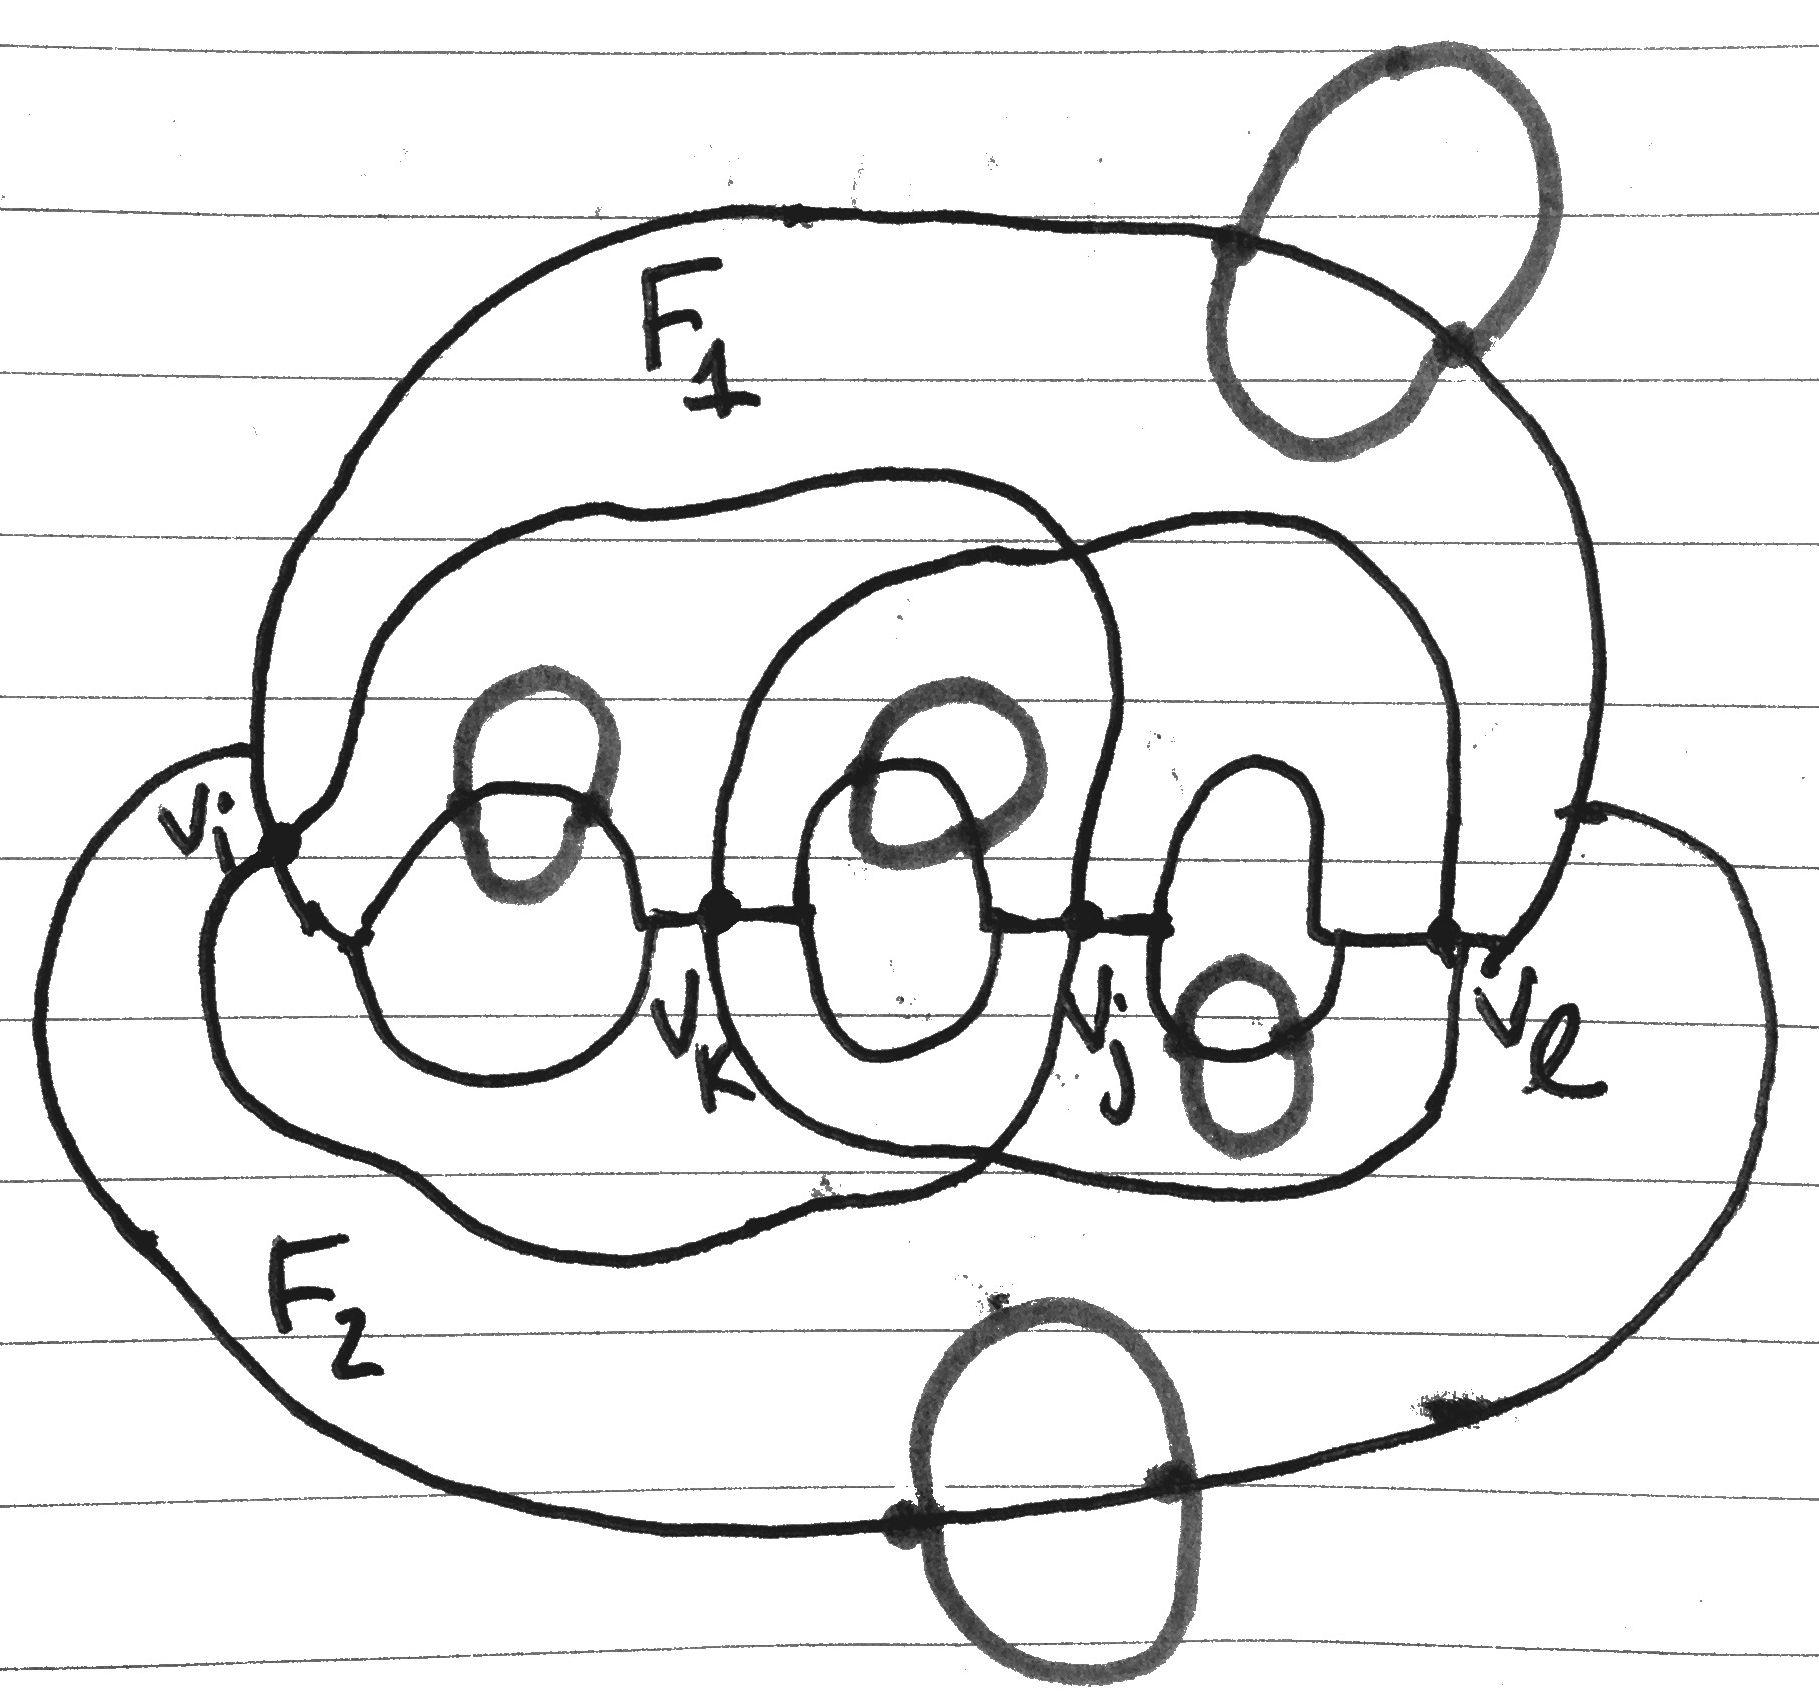 F1
Vi
Vk
Vj
Vl
F2